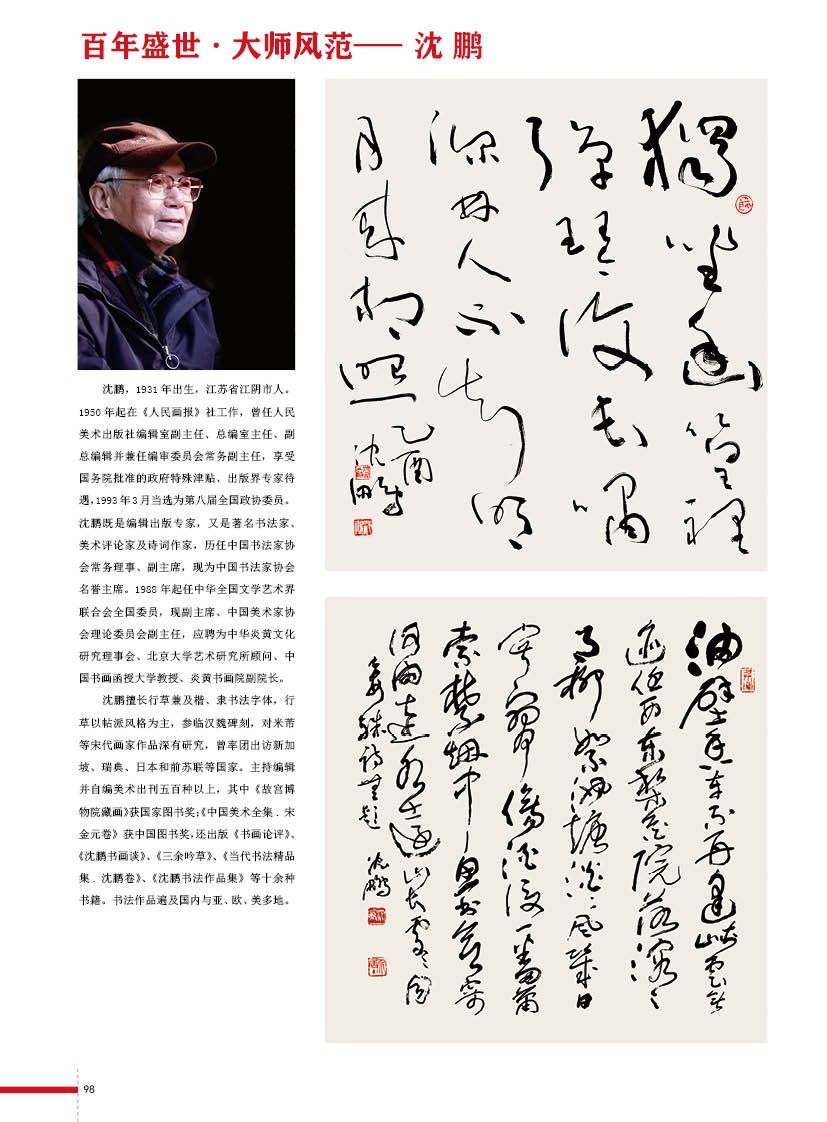 百年盛世·大师风范—— 沈 鹏
沈鹏，1931 年出生，江苏省江阴市人。
1950 年起在《人民画报》社工作，曾任人民
美术出版社编辑室副主任、总编室主任、副
总编辑并兼任编审委员会常务副主任，享受
国务院批准的政府特殊津贴、出版界专家待
遇，1993 年 3 月当选为第八届全国政协委员。
沈鹏既是编辑出版专家，又是著名书法家、
美术评论家及诗词作家，历任中国书法家协
会常务理事、副主席，现为中国书法家协会
名誉主席。1988 年起任中华全国文学艺术界
联合会全国委员，现副主席、中国美术家协
会理论委员会副主任，应聘为中华炎黄文化
研究理事会、北京大学艺术研究所顾问、中
国书画函授大学教授、炎黄书画院副院长。
沈鹏擅长行草兼及楷、隶书法字体，行
草以帖派风格为主，参临汉魏碑刻，对米芾
等宋代画家作品深有研究，曾率团出访新加
坡、瑞典、日本和前苏联等国家。主持编辑
并自编美术出刊五百种以上，其中《故宫博
物院藏画》获国家图书奖；《中国美术全集．宋
金元卷》获中国图书奖，还出版《书画论评》、
《沈鹏书画谈》、《三余吟草》、《当代书法精品
集．沈鹏卷》、《沈鹏书法作品集》等十余种
书籍。书法作品遍及国内与亚、欧、美多地。
獨坐幽篁裡
彈琴復長嘯
深林人不知
明月來相照
乙酉
沈鹏
油壁香車不再逢
峽雲無迹任西東
梨花院落溶溶月
柳絮池塘淡淡風
幾日寂寥傷酒後
一番蕭索禁煙中
魚書欲寄何由達
水遠山長處處同
晏殊詩無題
沈鹏
98